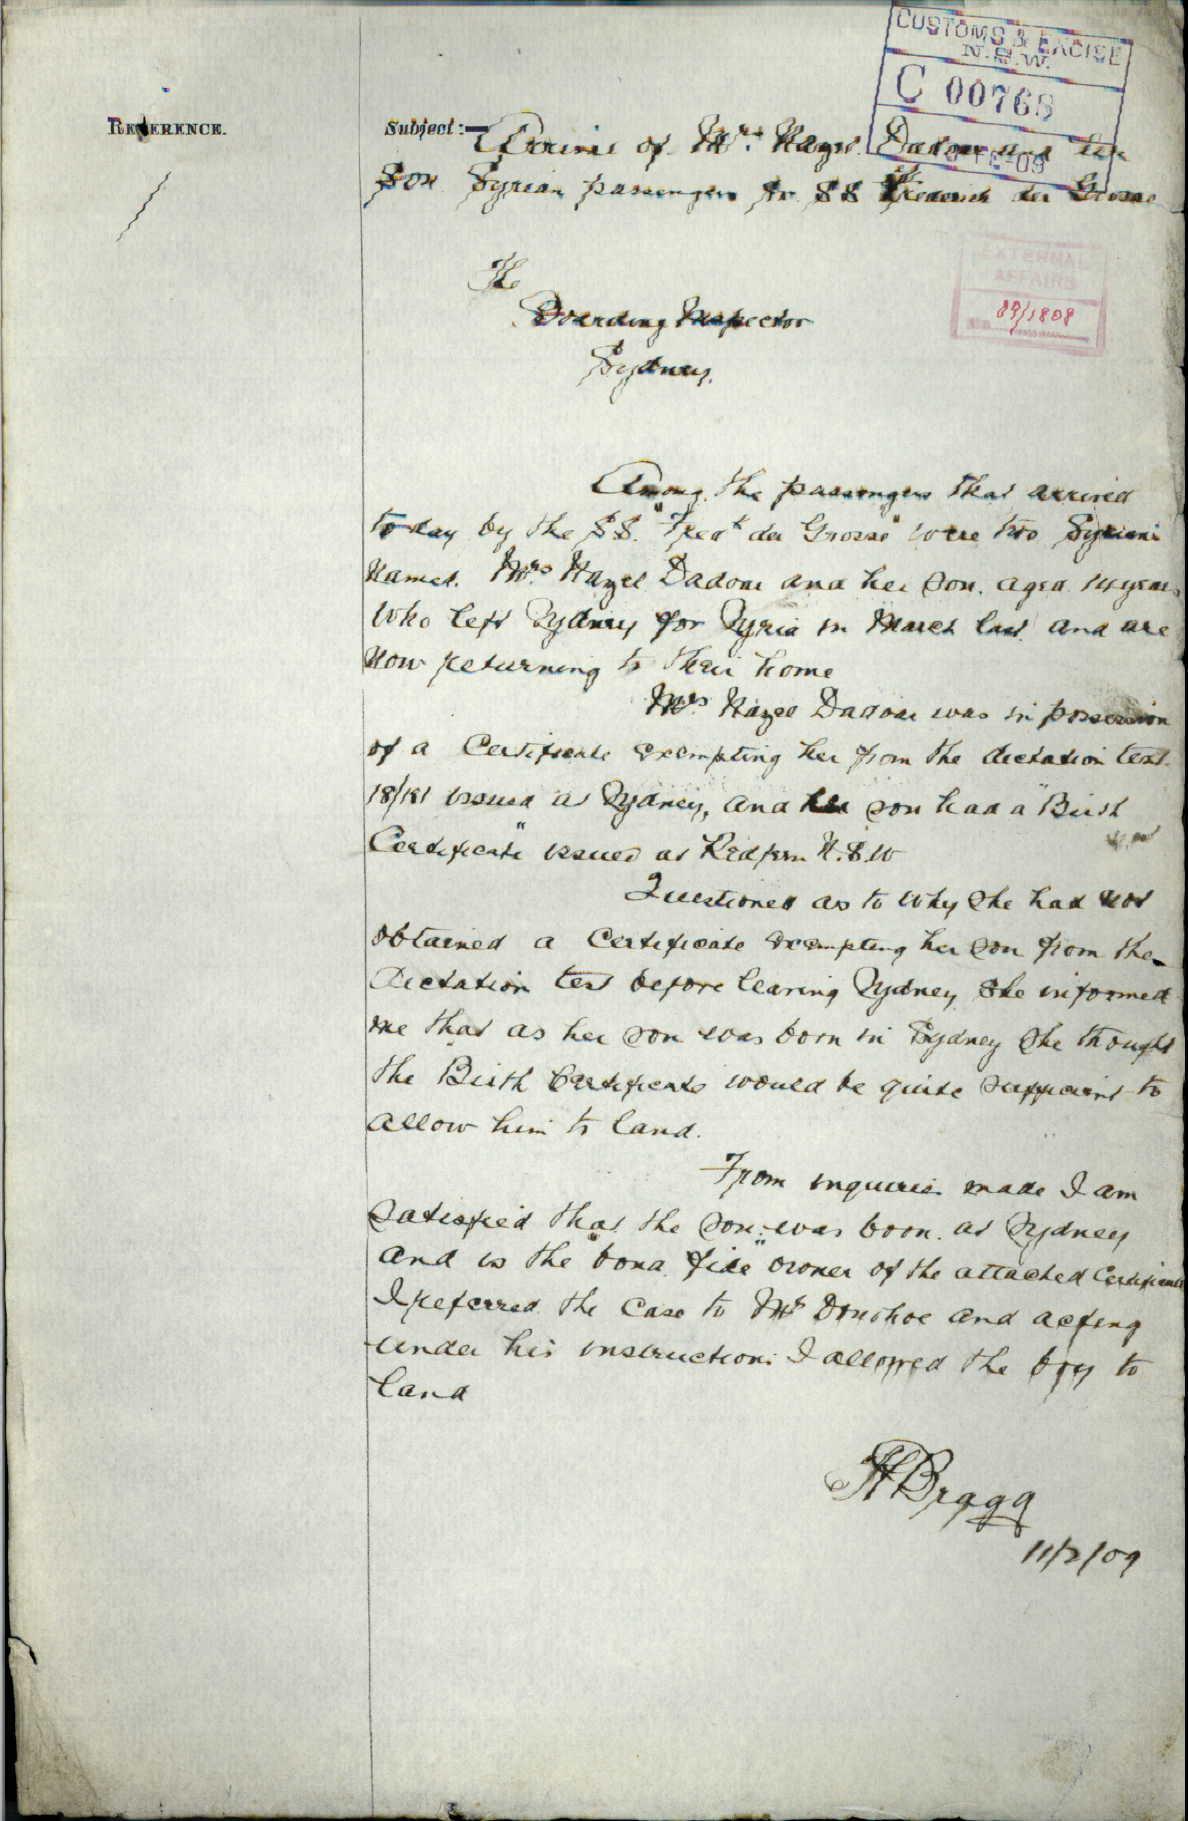 CUSTOMS & EXCISE
N.S.W.
C 00768
REFERENCE.
Subject:— Arrival of Mrs. Hazel Dadour and her
Son Syrian passengers pr. SS Frederich der Grosse
EXTERNAL
AFFAIRS
09/1808
The
Boarding Inspector
Sydney.
Among the passengers that arrived
today by the SS. "Fredk der Grosse" were two Syrians
named. Mrs Hazel Dadour and her son. aged 14 years
who left Sydney for Syria in March last and are
now returning to their home
Mrs Hazel Dadour was in possession
of a Certificate exempting her from the dictation test
18/181 issued at Sydney, and her son had a "Birth
Certificate" issued at Redfern N.S.W
Questioned as to why she had not
obtained a Certificate exempting her son from the
dictation test before leaving Sydney she informed
me that as her son was born in Sydney she thought
the Birth Certificate would be quite sufficient to
allow him to land.
From inquiries made I am
satisfied that the son was born. at Sydney
and is the "bona fide" owner of the attached Certificate
I referred the case to Mr Donohoe and acting
under his instructions I allowed the boy to
land
HBragg
11/2/09